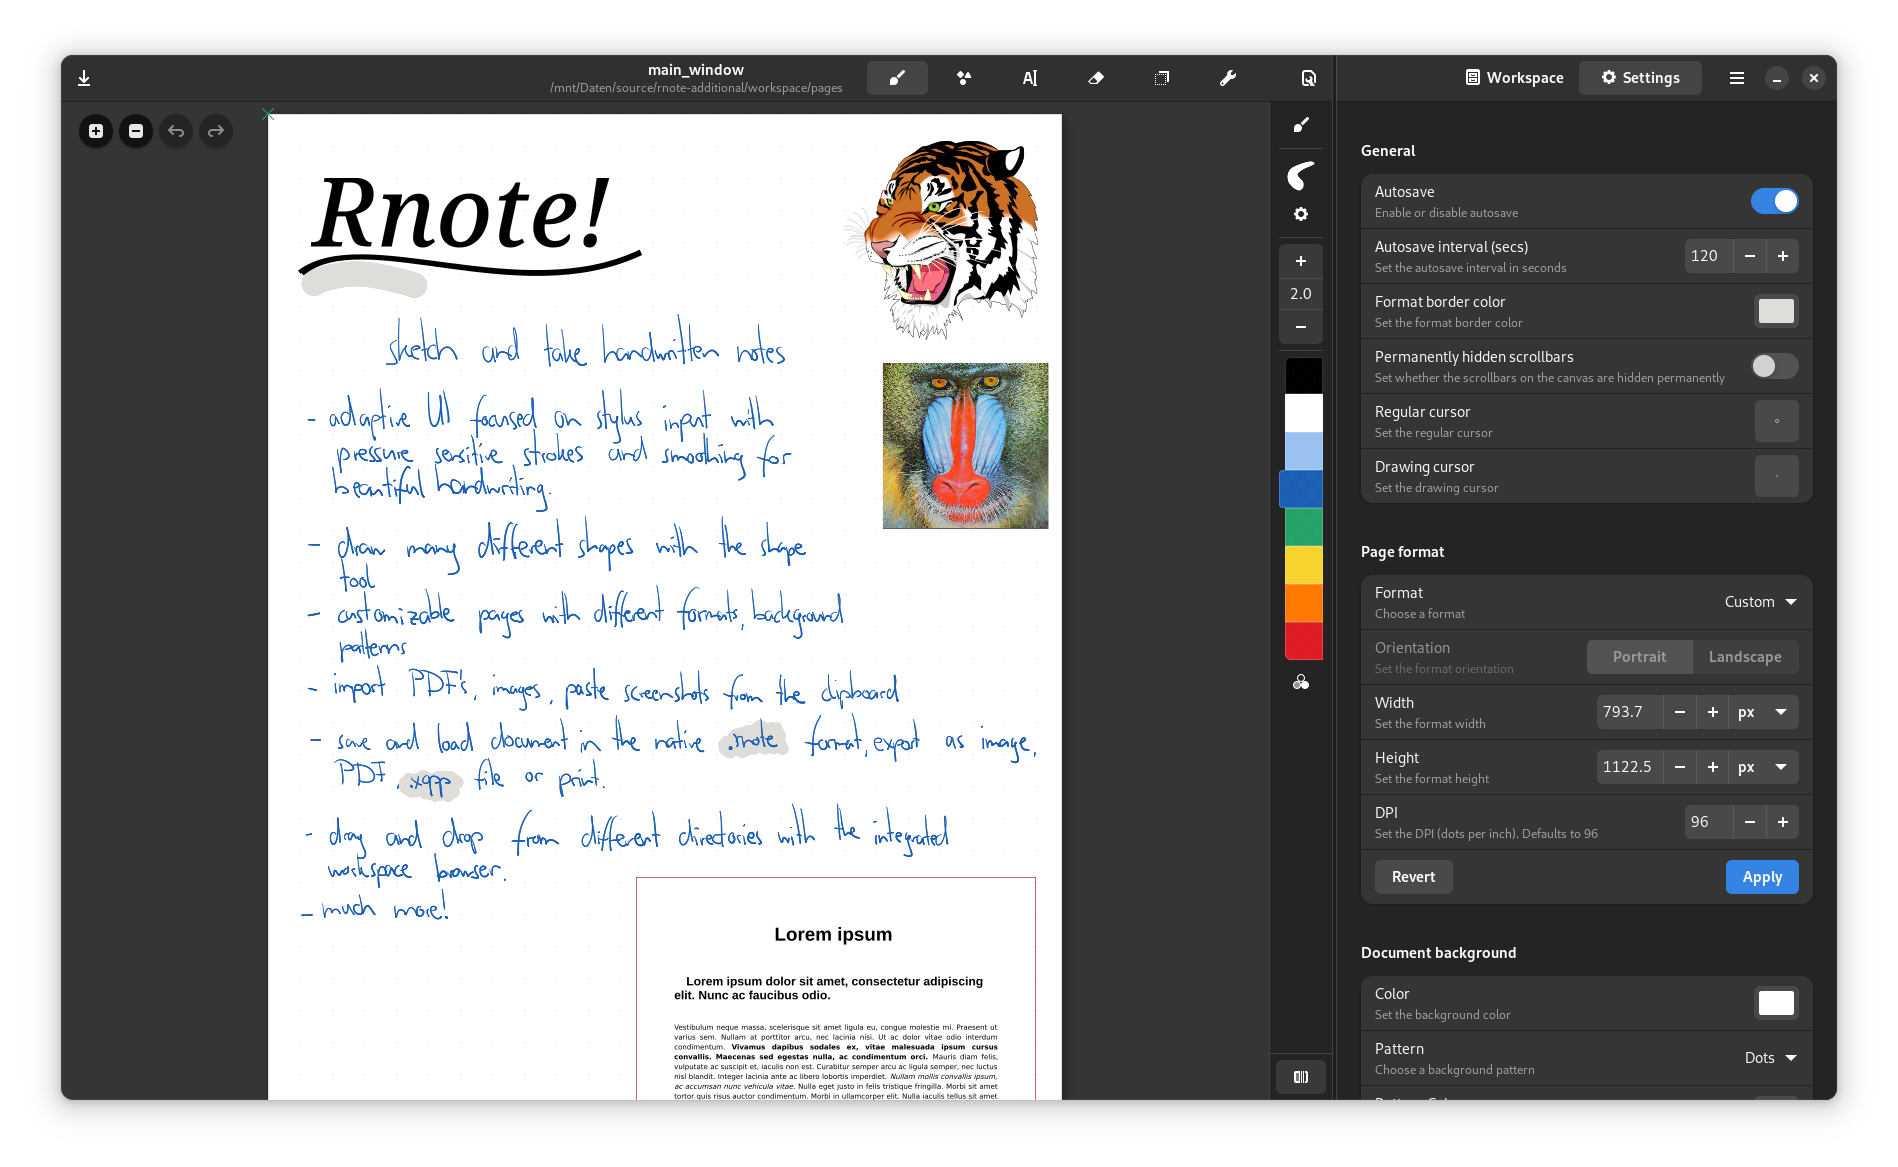 main_window
/mnt/Daten/source/rnote-additional/workspace/pages
Workspace
Settings
Rnote!
sketch and take handwritten notes
- adaptive UI focused on stylus input with
pressure sensitive strokes and smoothing for
beautiful handwriting.
- draw many different shapes with the shape
tool
- customizable pages with different formats, background
patterns
- import PDF's, images, paste screenshots from the clipboard
- save and load document in the native .rnote format, export as image,
PDF, .xopp file or print.
- drag and drop from different directories with the integrated
workspace browser.
- much more!
Lorem ipsum
Lorem ipsum dolor sit amet, consectetur adipiscing
elit. Nunc ac faucibus odio.
Vestibulum neque massa, scelerisque sit amet ligula eu, congue molestie mi. Praesent ut
varius sem. Nullam at porttitor arcu, nec lacinia nisi. Ut ac dolor vitae odio interdum
condimentum. Vivamus dapibus sodales ex, vitae malesuada ipsum cursus
convallis. Maecenas sed egestas nulla, ac condimentum orci. Mauris diam felis,
vulputate ac suscipit et, iaculis non est. Curabitur semper arcu ac ligula semper, nec luctus
nisl blandit. Integer lacinia ante ac libero lobortis imperdiet. Nullam mollis convallis ipsum,
ac accumsan nunc vehicula vitae. Nulla eget justo in felis tristique fringilla. Morbi sit amet
tortor quis risus auctor condimentum. Morbi in ullamcorper elit. Nulla iaculis tellus sit amet
2.0
General
Autosave
Enable or disable autosave
Autosave interval (secs)
Set the autosave interval in seconds
120
Format border color
Set the format border color
Permanently hidden scrollbars
Set whether the scrollbars on the canvas are hidden permanently
Regular cursor
Set the regular cursor
Drawing cursor
Set the drawing cursor
Page format
Format
Choose a format
Custom
Orientation
Set the format orientation
Portrait
Landscape
Width
Set the format width
793.7
px
Height
Set the format height
1122.5
px
DPI
Set the DPI (dots per inch). Defaults to 96
96
Revert
Apply
Document background
Color
Set the background color
Pattern
Choose a background pattern
Dots